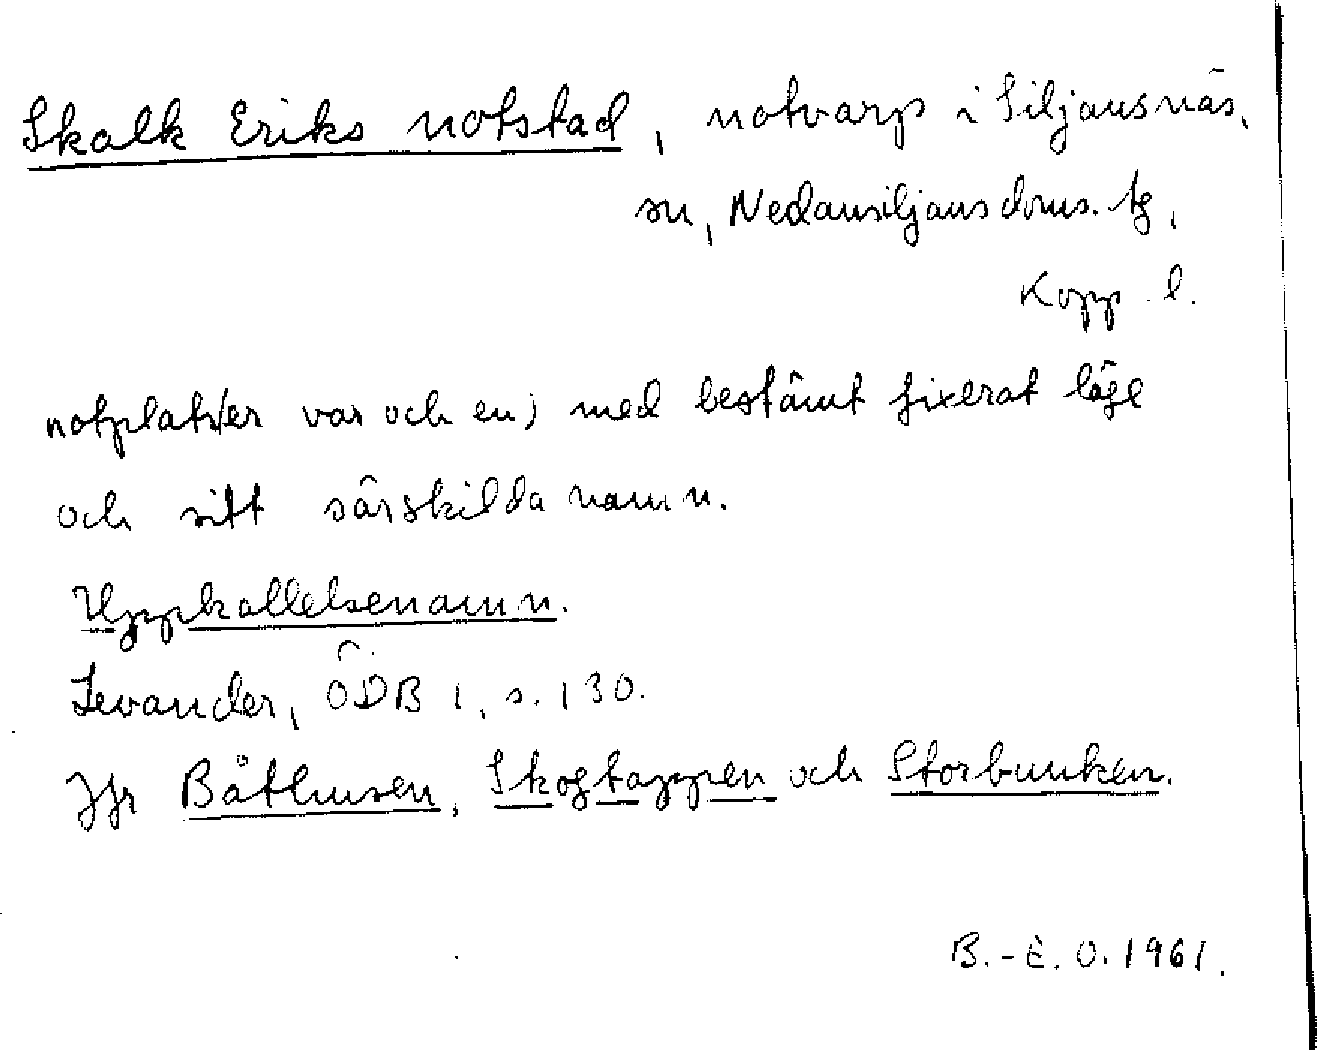 Skalk Eriks notstad, notvarp i Siljansnäs,
sn, Nedansiljans doms. tg,
Kopp. l.
notplatser var och en) med bestämt fixerat läge
och sitt särskilda namn.
Uppkallelsenamn.
Levander, ÖDB 1, s. 130.
Jfr Båthusen, Skogtäppen och Storbunken.
B.-E. O. 1961.